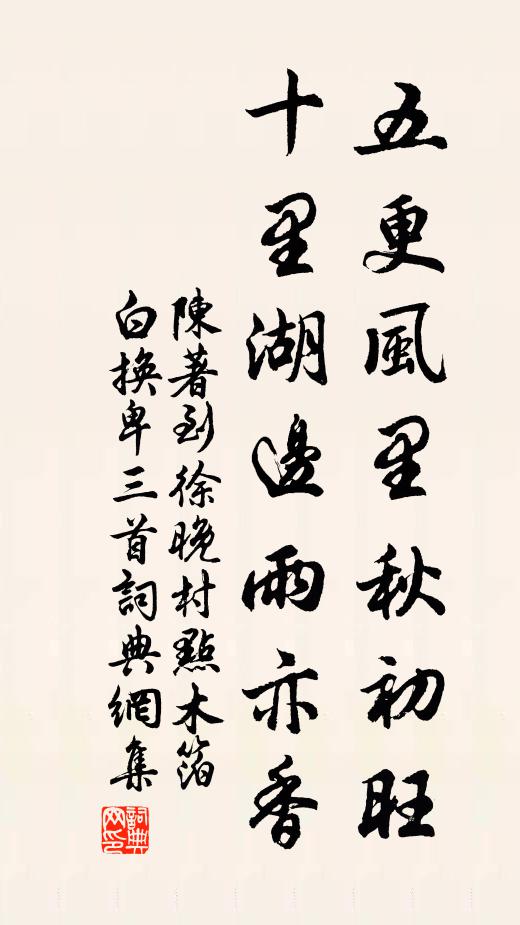 五更風里秋初旺
十里湖邊雨亦香
陳著到徐晚村點木箔
白換卑三首詞典網集
詞典網印